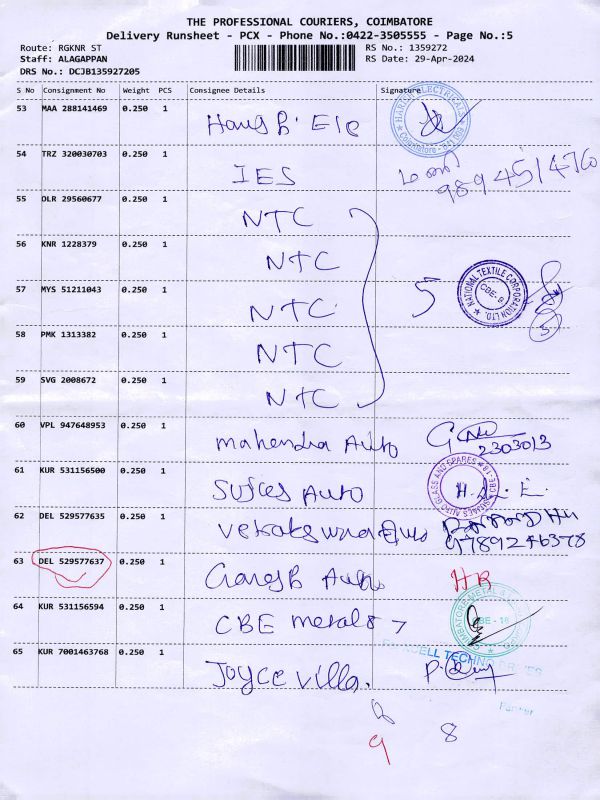 THE PROFESSIONAL COURIERS, COIMBATORE
Delivery Runsheet - PCX - Phone No.:0422-3505555 - Page No.:5
Route: RGKNR ST RS No.: 1359272
Staff: ALAGAPPAN RS Date: 29-Apr-2024
DRS No.: DCJB135927205
S No Consignment No Weight PCS Consignee Details Signature
53 MAA 288141469 0.250 1 HARISH ELECTRICALS Coimbatore
54 TRZ 320030703 0.250 1 IES 9894514760
55 DLR 29560677 0.250 1 NTC
56 KNR 1228379 0.250 1 NTC
57 MYS 51211043 0.250 1 NTC 5 NATIONAL TEXTILE CORPORATION LTD. CBE-9
58 PMK 1313382 0.250 1 NTC
59 SVG 2008672 0.250 1 NTC
60 VPL 947648953 0.250 1 Mahendra Auto 2303013
61 KUR 531156500 0.250 1 Auto AUTO GLASS AND SPARES
62 DEL 529577635 0.250 1 9789246378
63 DEL 529577637 0.250 1 HR
64 KUR 531156594 0.250 1 CBE metals COIMBATORE METAL
65 KUR 7001463768 0.250 1 Joyce villa.
Partner
9 8